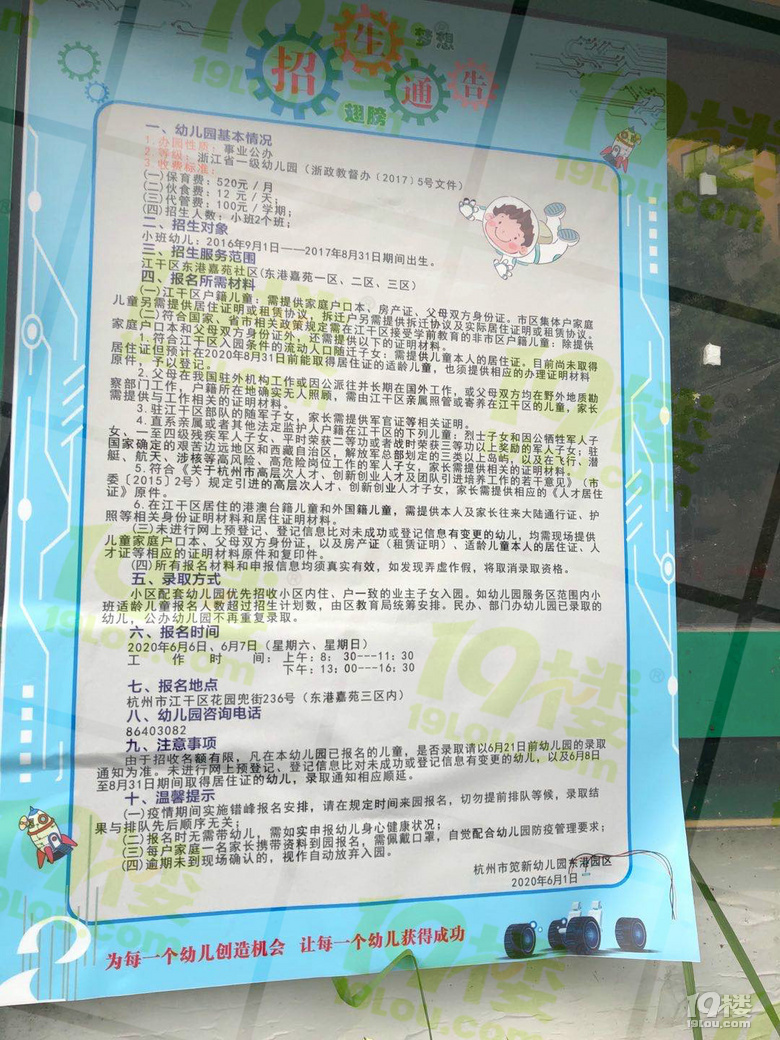 梦想
招生通告
翅膀
一、幼儿园基本情况
1.办园性质：事业公办
2.等级：浙江省一级幼儿园（浙政教督办（2017）5号文件）
3.收费标准：
(一)保育费：520元／月
(二)伙食费：12 元／天；
(三)代管费：100元／学期；
(四)招生人数：小班2个班；
二、招生对象
小班幼儿：2016年9月1日——2017年8月31日期间出生。
三、招生服务范围
江干区东港嘉苑社区(东港嘉苑一区、二区、三区)
四、报名所需材料
(一)江干区户籍儿童：需提供家庭户口本、房产证、父母双方身份证。市区集体户家庭
儿童另需提供居住证明或租赁协议，拆迁户另需提供拆迁协议及实际居住证明或租赁协议。
(二)符合国家、省市相关政策规定需在江干区接受学前教育的非市区户籍儿童：除提供
家庭户口本和父母双方身份证外，还需提供以下的证明材料。
1.符合江干区入园条件的流动人口随迁子女：需提供儿童本人的居住证。目前尚未取得
居住证但预计在2020年8月31日前能取得居住证的适龄儿童，也须提供相应的办理证明材料
原件，予以登记。
2.父母在我国驻外机构工作或因公派往井长期在国外工作，或父母双方均在野外地质勘
察部门工作，户籍所在地确实无人照顾，需由江干区亲属照管或寄养在江干区的儿童，家长
需提供与工作相关的证明材料。
3.驻江干区部队的随军子女，家长需提供军官证等相关证明。
4.直系亲属或者其他法定监护人户籍在江干区的下列儿童：烈士子女和因公牺牲军人子
女、一至四级残疾军人子女、平时荣获二等功或者战时荣获三等功以上奖励的军人子女；驻
国家确定的艰苦边远地区和西藏自治区，解放军总部划定的三类以上岛屿，以及在飞行、潜
艇、航天、涉核等高风险、高危险岗位工作的军人子女，家长需提供相关的证明材料。
5.符合《关于杭州市高层次人才、创新创业人才及团队引进培养工作的若干意见》（市
委［2015］2号）规定引进的高层次人才、创新创业人才子女，家长需提供相应的《人才居住
证》原件。
6.在江干区居住的港澳台籍儿童和外国籍儿童，需提供本人及家长往来大陆通行证、护
照等相关身份证明材料和居住证明材料。
(三)未进行网上预登记、登记信息比对未成功或登记信息有变更的幼儿，均需现场提供
儿童家庭户口本、父母双方身份证，以及房产证（租赁证明）、适龄儿童本人的居住证、人
才证等相应的证明材料原件和复印件。
(四)所有报名材料和申报信息均须真实有效，如发现弄虚作假，将取消录取资格。
五、录取方式
小区配套幼儿园优先招收小区内住、户一致的业主子女入园。如幼儿园服务区范围内小
班适龄儿童报名人数超过招生计划数，由区教育局统筹安排。民办、部门办幼儿园已录取的
幼儿，公办幼儿园不再重复录取。
六、报名时间
2020年6月6日、6月7日（星期六、星期日）
工 作 时 间：上午：8：30---11：30
下午：13：00---16：30
七、报名地点
杭州市江干区花园兜街236号（东港嘉苑三区内）
八、幼儿园咨询电话
86403082
九、注意事项
由于招收名额有限，凡在本幼儿园已报名的儿童，是否录取请以6月21日前幼儿园的录取
通知为准。未进行网上预登记、登记信息比对未成功或登记信息有变更的幼儿，以及6月8日
至8月31日期间取得居住证的幼儿，录取通知相应顺延。
十、温馨提示
(一)疫情期间实施错峰报名安排，请在规定时间来园报名，切勿提前排队等候，录取结
果与排队先后顺序无关；
(二)报名时无需带幼儿，需如实申报幼儿身心健康状况；
(三)每户家庭一名家长携带资料到园报名，需佩戴口罩，自觉配合幼儿园防疫管理要求；
(四)逾期未到现场确认的，视作自动放弃入园。
杭州市笕新幼儿园东港园区
2020年6月1日
为每一个幼儿创造机会 让每一个幼儿获得成功
19楼
19Lou.com